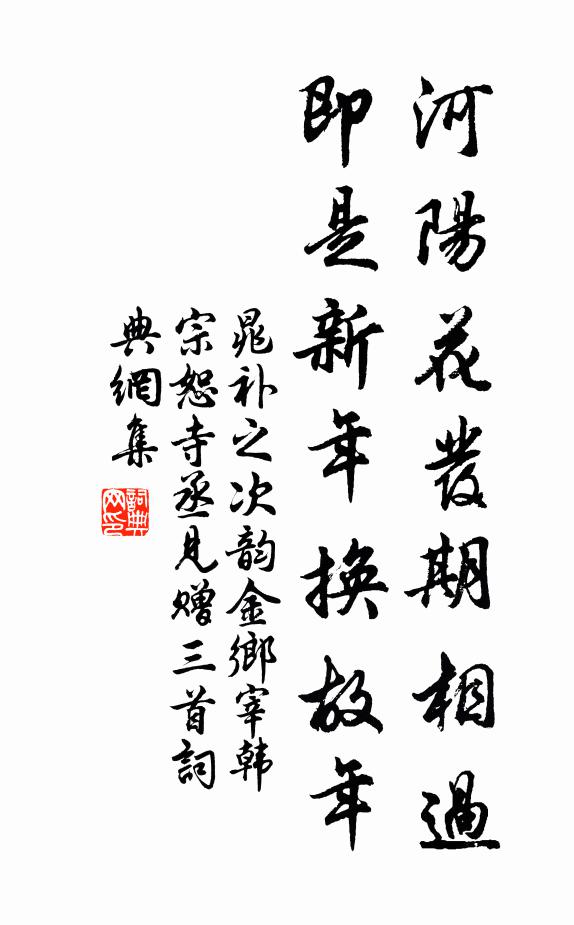 河陽花發期相過
即是新年換故年
晁补之次韵金鄉宰韩
宗恕寺丞見贈三首詞
典網集
詞典网印